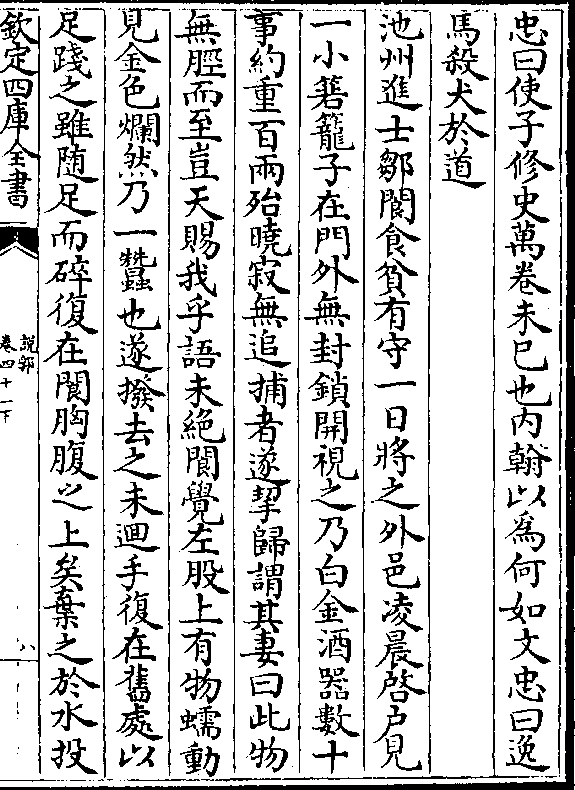 忠曰使子修史萬卷未已也内翰以爲何如文忠曰逸
馬殺犬於道
池州進士鄒閬食貧有守一日將之外邑凌晨啓户見
一小箬籠子在門外無封鎖開視之乃白金酒器數十
事約重百兩殆曉寂無追捕者遂挈歸謂其妻曰此物
無脛而至豈天賜我乎語未絶閬覺左股上有物蠕動
見金色爛然乃一蠶也遂撥去之未迴手復在舊處以
足踐之雖随足而碎復在閬胸腹之上矣棄之於水投
欽定四庫全書
説郛
卷四十一下
八